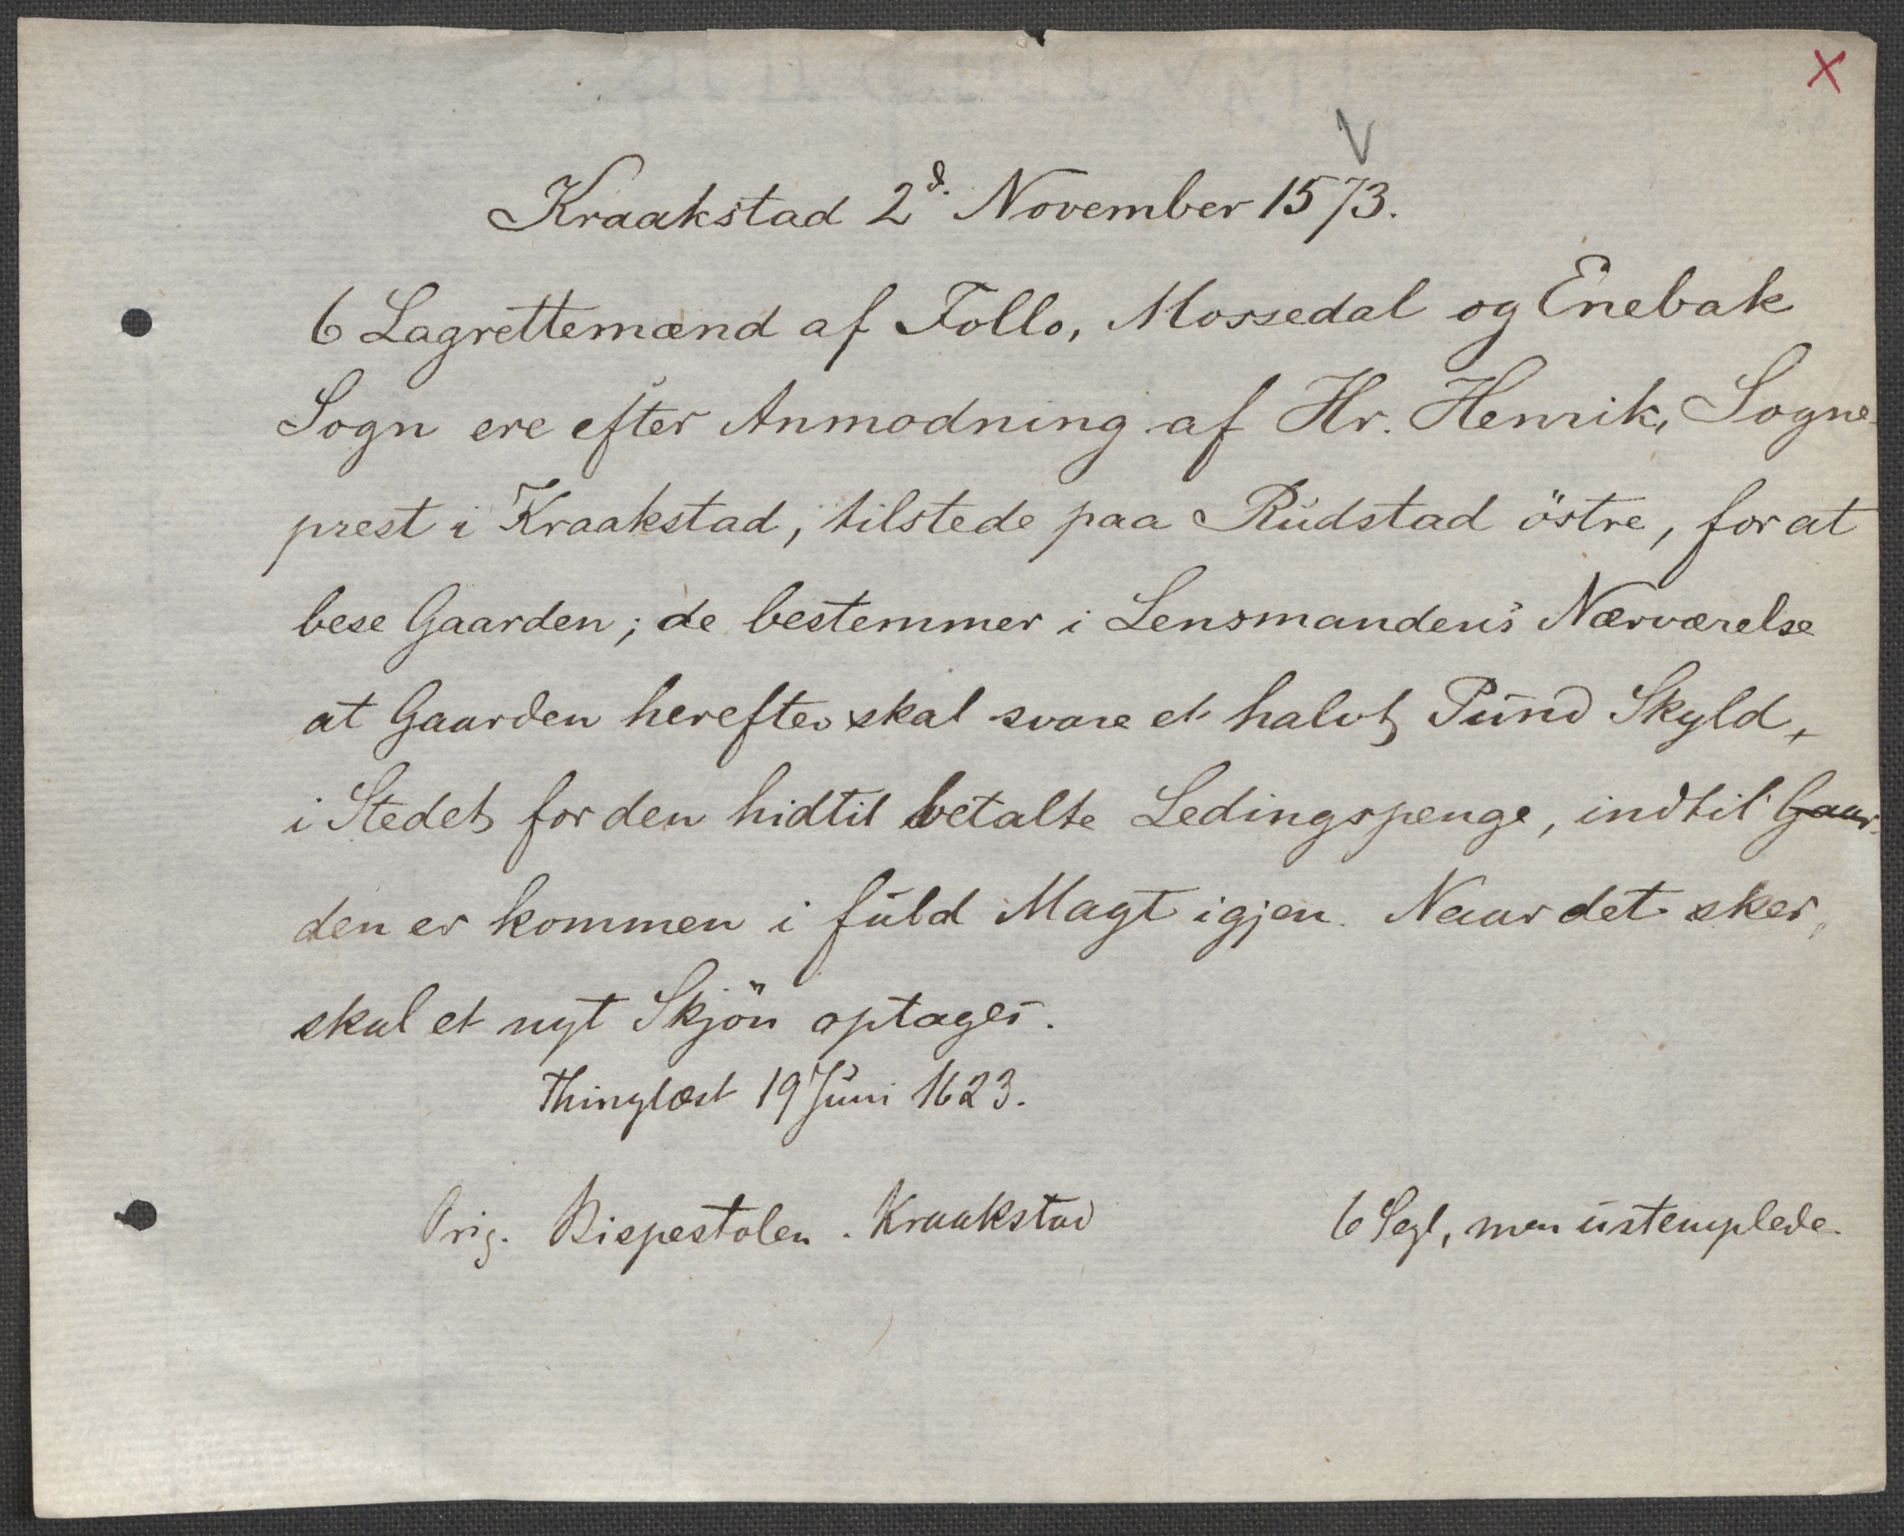 Kraakstad 2d. November 1573.
6 Lagrettemænd af Follo, Mossedal og Enebak
Sogn ere efter Anmodning af Hr. Henrik, Sogne-
prest i Kraakstad, tilstede paa Rudstad östre, for at
bese Gaarden; de bestemmer i Lensmandens Nærværelse
at Gaarden herefter skal svare et halvt Pund Skyld,
i Stedet for den hidtil betalte Ledingspenge, indtil Gaar-
den er kommen i fuld Magt igjen. Naar det sker,
skal et nyt Skjön optages.
Thinglæst 19 Juni 1623.
Orig. Bispestolen. Kraakstad
6 Segl, men ustemplede